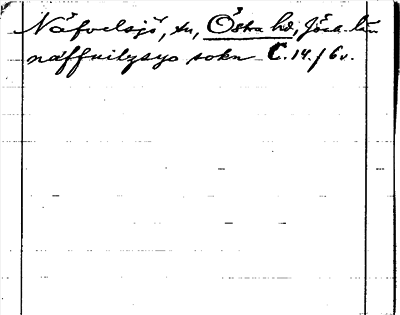 Näfvelsjö, sn, Östra hd, Jönk. län
näffuilysyo sokn C. 14./6v.